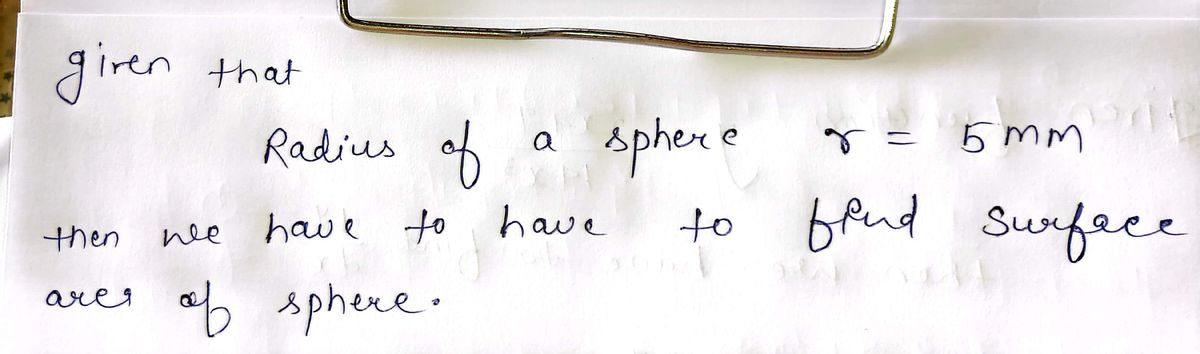 given that
Radius of a sphere r = 5 mm
then we have to have to find surface
area of sphere.